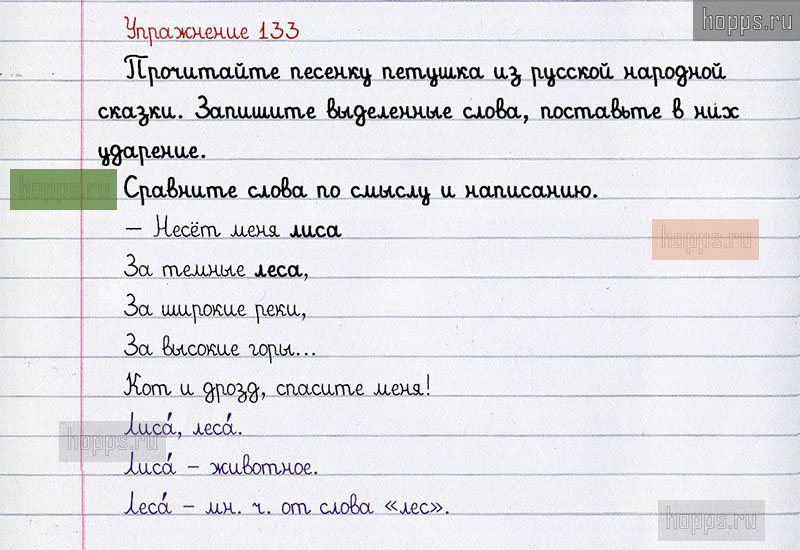 hopps.ru
Упражнение 133
Прочитайте песенку петушка из русской народной
сказки. Запишите выделенные слова, поставьте в них
ударение.
hopps.ru
Сравните слова по смыслу и написанию.
– Несёт меня лиса
hopps.ru
За темные леса,
За широкие реки,
За высокие горы...
Кот и дрозд, спасите меня!
Лиса́, леса́.
hopps.ru
Лиса́ – животное.
Леса́ – мн. ч. от слова «лес».
hopps.ru